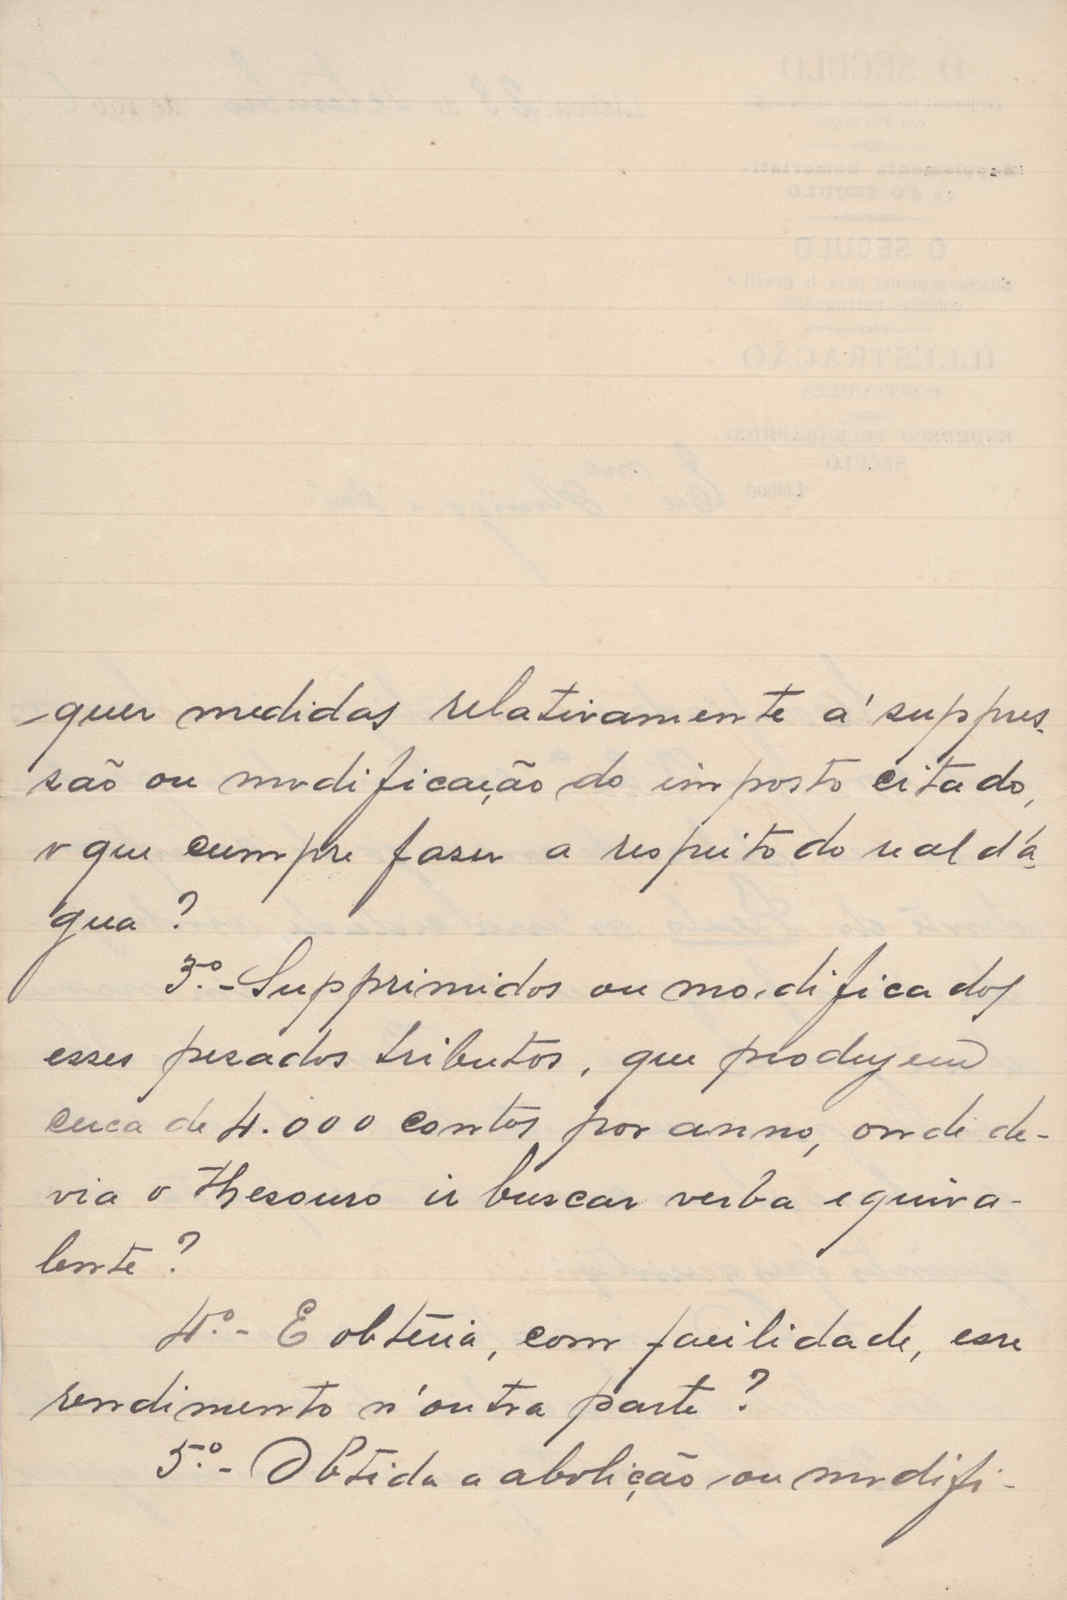 -quer medidas relativamente á suppres-
são ou modificação do imposto citado,
o que cumpre fazer a respeito do real d'á-
gua?
3.º - Supprimidos ou modificados
esses pesados tributos, que produzem
cerca de 4.000 contos por anno, onde de-
via o Thesouro ir buscar verba equiva-
lente?
4.º - E obteria, com facilidade, esse
rendimento n'outra parte?
5.º - Obtida a abolição ou modifi-